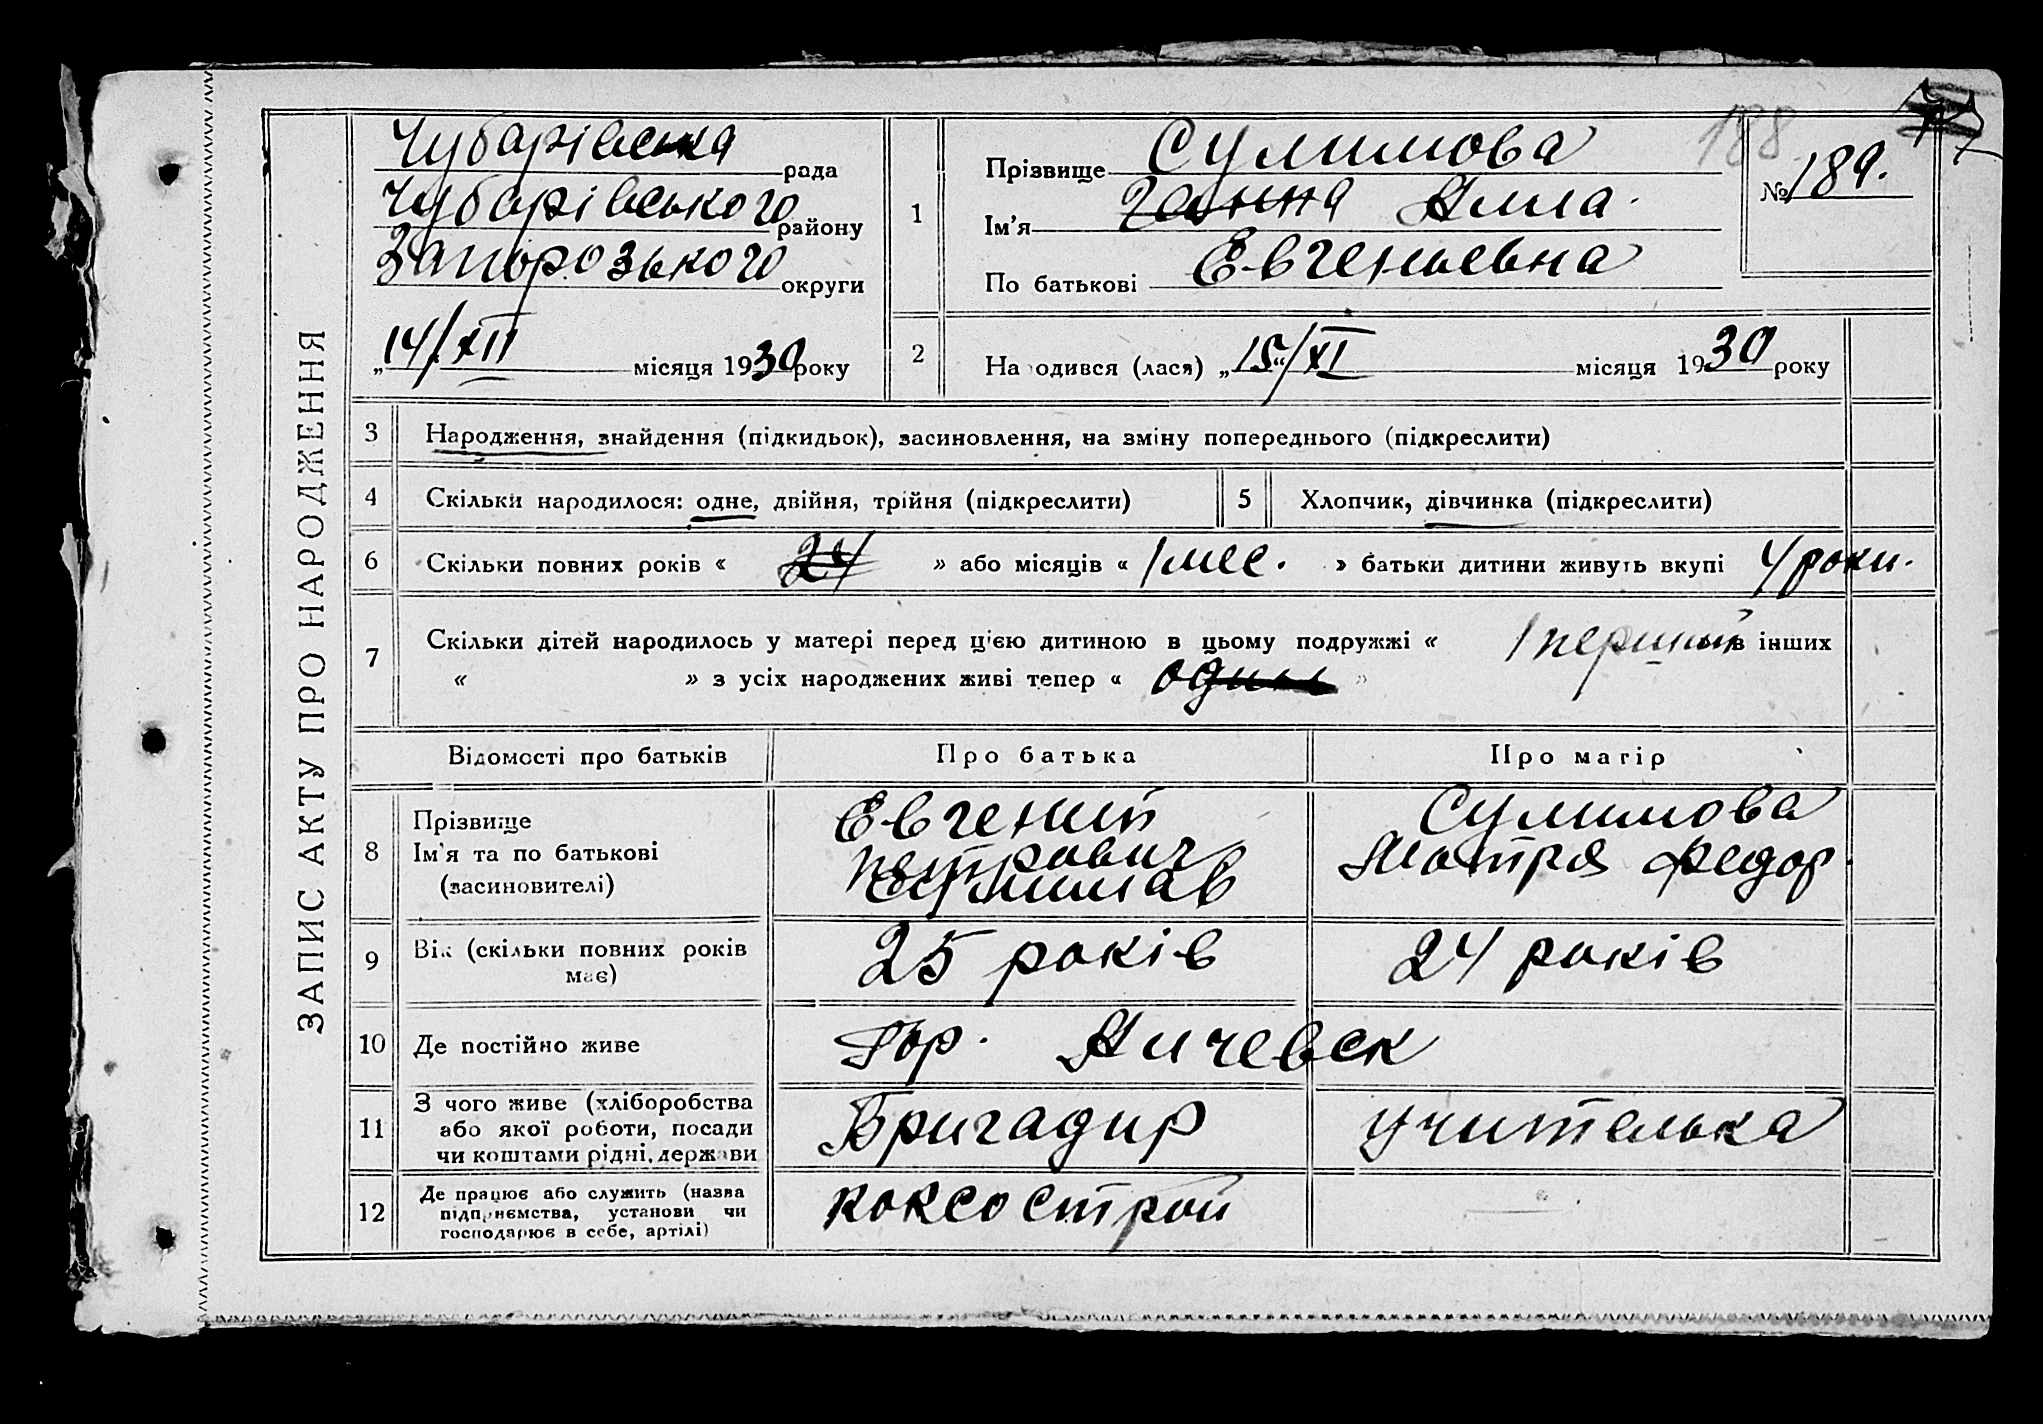 ЗАПИС АКТУ ПРО НАРОДЖЕННЯ
Чубарівська рада
Чубарівського району
Запорозького округи
„14/XII місяця 1930 року
188
№ 189.
1
Прізвище Сулимова
Ім'я Ганна Алла.
По батькові Евгеньевна
2
На одився (лася) „15“/XI місяця 1930 року
3
Народження, знайдення (підкидьок), засиновлення, на зміну попереднього (підкреслити)
4
Скільки народилося: одне, двійня, трійня (підкреслити)
5
Хлопчик, дівчинка (підкреслити)
6
Скільки повних років « 24 » або місяців « 1 мес. » батьки дитини живуть вкупі 4 роки.
7
Скільки дітей народилось у матері перед цією дитиною в цьому подружжі « 1 перший в інших
« » з усіх народжених живі тепер « один »
Відомості про батьків
Про батька
Про матір
8
Прізвище
Ім'я та по батькові
(засиновителі)
Евгений
Петрович
Сулимав
Сулимова
Мотря Федор.
9
Вік (скільки повних років
має)
25 років
24 років
10
Де постійно живе
Гор. Аичевск
11
З чого живе (хліборобства
або якої роботи, посади
чи коштами рідні, держави
Бригадир
Учителька
12
Де працює або служить (назва
підприємства, установи чи
господарює в себе, артілі)
Коксострой